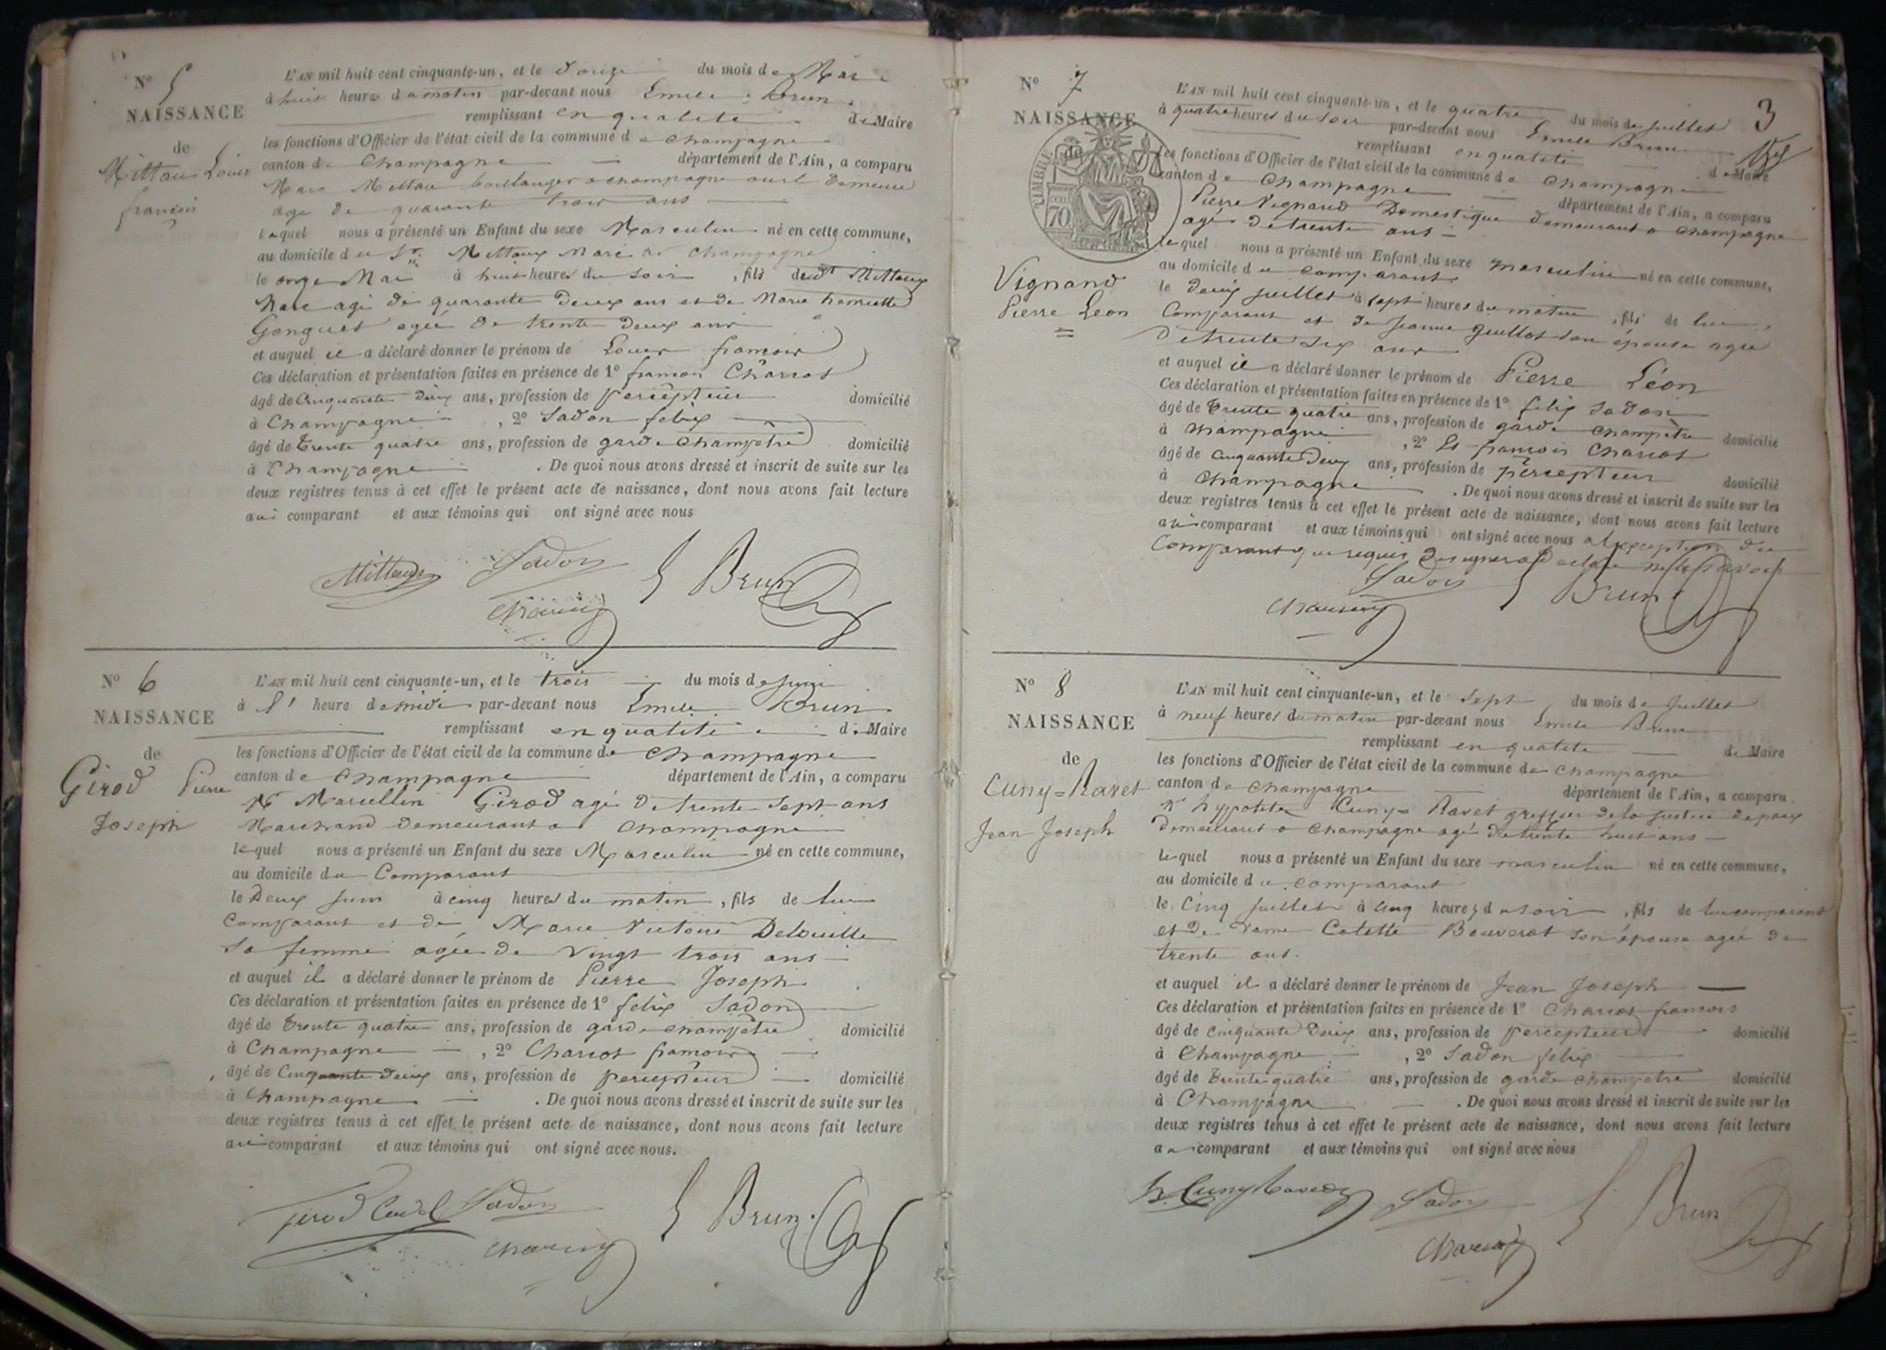 N° 5
NAISSANCE
de
Mittau Louis
françois
L'AN mil huit cent cinquante-un, et le douze du mois de Mai
à huit heures du matin par-devant nous Emile Brun
remplissant en qualité de Maire
les fonctions d'Officier de l'état civil de la commune de Champagne
canton de Champagne département de l'Ain, a comparu
Marc Mittau boulanger a champagne ou il demeure
age de quarante trois ans
lequel nous a présenté un Enfant du sexe Masculin né en cette commune,
au domicile du Sr Mittaux Marc à Champagne
le onze Mai à huit heures du soir, fils dudt Mittaux
Marc agé de quarante deux ans et de Marie henriette
Gonguet agée de trente deux ans
et auquel il a déclaré donner le prénom de Louis françois
Ces déclaration et présentation faites en présence de 1° françois Charcot
âgé de Cinquante deux ans, profession de percepteur domicilié
à Champagne, 2° Sadon felix
âgé de trente quatre ans, profession de garde champêtre domicilié
à Champagne. De quoi nous avons dressé et inscrit de suite sur les
deux registres tenus à cet effet le présent acte de naissance, dont nous avons fait lecture
au comparant et aux témoins qui ont signé avec nous
Mittaux Sadon E Brun
Charcot
N° 6
NAISSANCE
de
Girod Pierre
Joseph
L'AN mil huit cent cinquante-un, et le trois du mois de juin
à 1 heure de midi par-devant nous Emile Brun
remplissant en qualité de Maire
les fonctions d'Officier de l'état civil de la commune de Champagne
canton de Champagne département de l'Ain, a comparu
Mr Marcellin Girod agé de trente-sept ans
Marchand demeurant a Champagne
lequel nous a présenté un Enfant du sexe Masculin né en cette commune,
au domicile du Comparant
le Deux juin à cinq heures du matin, fils de lui
Comparant et de Marie Victoire Delouille
sa femme agée de vingt trois ans
et auquel il a déclaré donner le prénom de Pierre Joseph
Ces déclaration et présentation faites en présence de 1° felix Sadon
âgé de trente quatre ans, profession de garde champêtre domicilié
à Champagne, 2° Charcot françois
âgé de Cinquante deux ans, profession de percepteur domicilié
à Champagne. De quoi nous avons dressé et inscrit de suite sur les
deux registres tenus à cet effet le présent acte de naissance, dont nous avons fait lecture
au comparant et aux témoins qui ont signé avec nous.
Girod Sadon E Brun
Charcot
3
N° 7
NAISSANCE
de
TIMBRE
70
Vignand
Pierre Léon
L'AN mil huit cent cinquante-un, et le quatre du mois de juillet
à quatre heures du soir par-devant nous Emile Brun
remplissant en qualité de Maire
les fonctions d'Officier de l'état civil de la commune de Champagne
canton de Champagne département de l'Ain, a comparu
Pierre Vignand Domestique demeurant a champagne
agé de trente ans
lequel nous a présenté un Enfant du sexe masculin né en cette commune,
au domicile du comparant
le deux juillet à sept heures du matin, fils de lui
Comparant et de jeanne guillot son épouse agée
de trente six ans
et auquel il a déclaré donner le prénom de Pierre Léon
Ces déclaration et présentation faites en présence de 1° felix Sadon
âgé de trente quatre ans, profession de garde champêtre domicilié
à champagne, 2° Et françois Charcot
âgé de cinquante deux ans, profession de percepteur domicilié
à Champagne. De quoi nous avons dressé et inscrit de suite sur les
deux registres tenus à cet effet le présent acte de naissance, dont nous avons fait lecture
au comparant et aux témoins qui ont signé avec nous a l'exception du
Comparant que requis de signer a déclaré ne le savoir
Sadon E Brun
Charcot
N° 8
NAISSANCE
de
Cuny-Ravet
Jean Joseph
L'AN mil huit cent cinquante-un, et le sept du mois de juillet
à neuf heures du matin par-devant nous Emile Brun
remplissant en qualité de Maire
les fonctions d'Officier de l'état civil de la commune de Champagne
canton de Champagne département de l'Ain, a comparu
Mr hyppolite Cuny-Ravet greffier de la justice de paix
demeurant a Champagne agé de trente huit ans
lequel nous a présenté un Enfant du sexe masculin né en cette commune,
au domicile du comparant
le Cinq juillet à cinq heures du soir, fils de lui comparant
et de Dame Colette Bouverot son épouse agée de
trente ans.
et auquel il a déclaré donner le prénom de Jean Joseph
Ces déclaration et présentation faites en présence de 1° Charcot françois
âgé de cinquante deux ans, profession de percepteur domicilié
à Champagne, 2° Sadon felix
âgé de trente-quatre ans, profession de garde champêtre domicilié
à Champagne. De quoi nous avons dressé et inscrit de suite sur les
deux registres tenus à cet effet le présent acte de naissance, dont nous avons fait lecture
au comparant et aux témoins qui ont signé avec nous
h. Cuny Ravet Sadon E Brun
Charcot